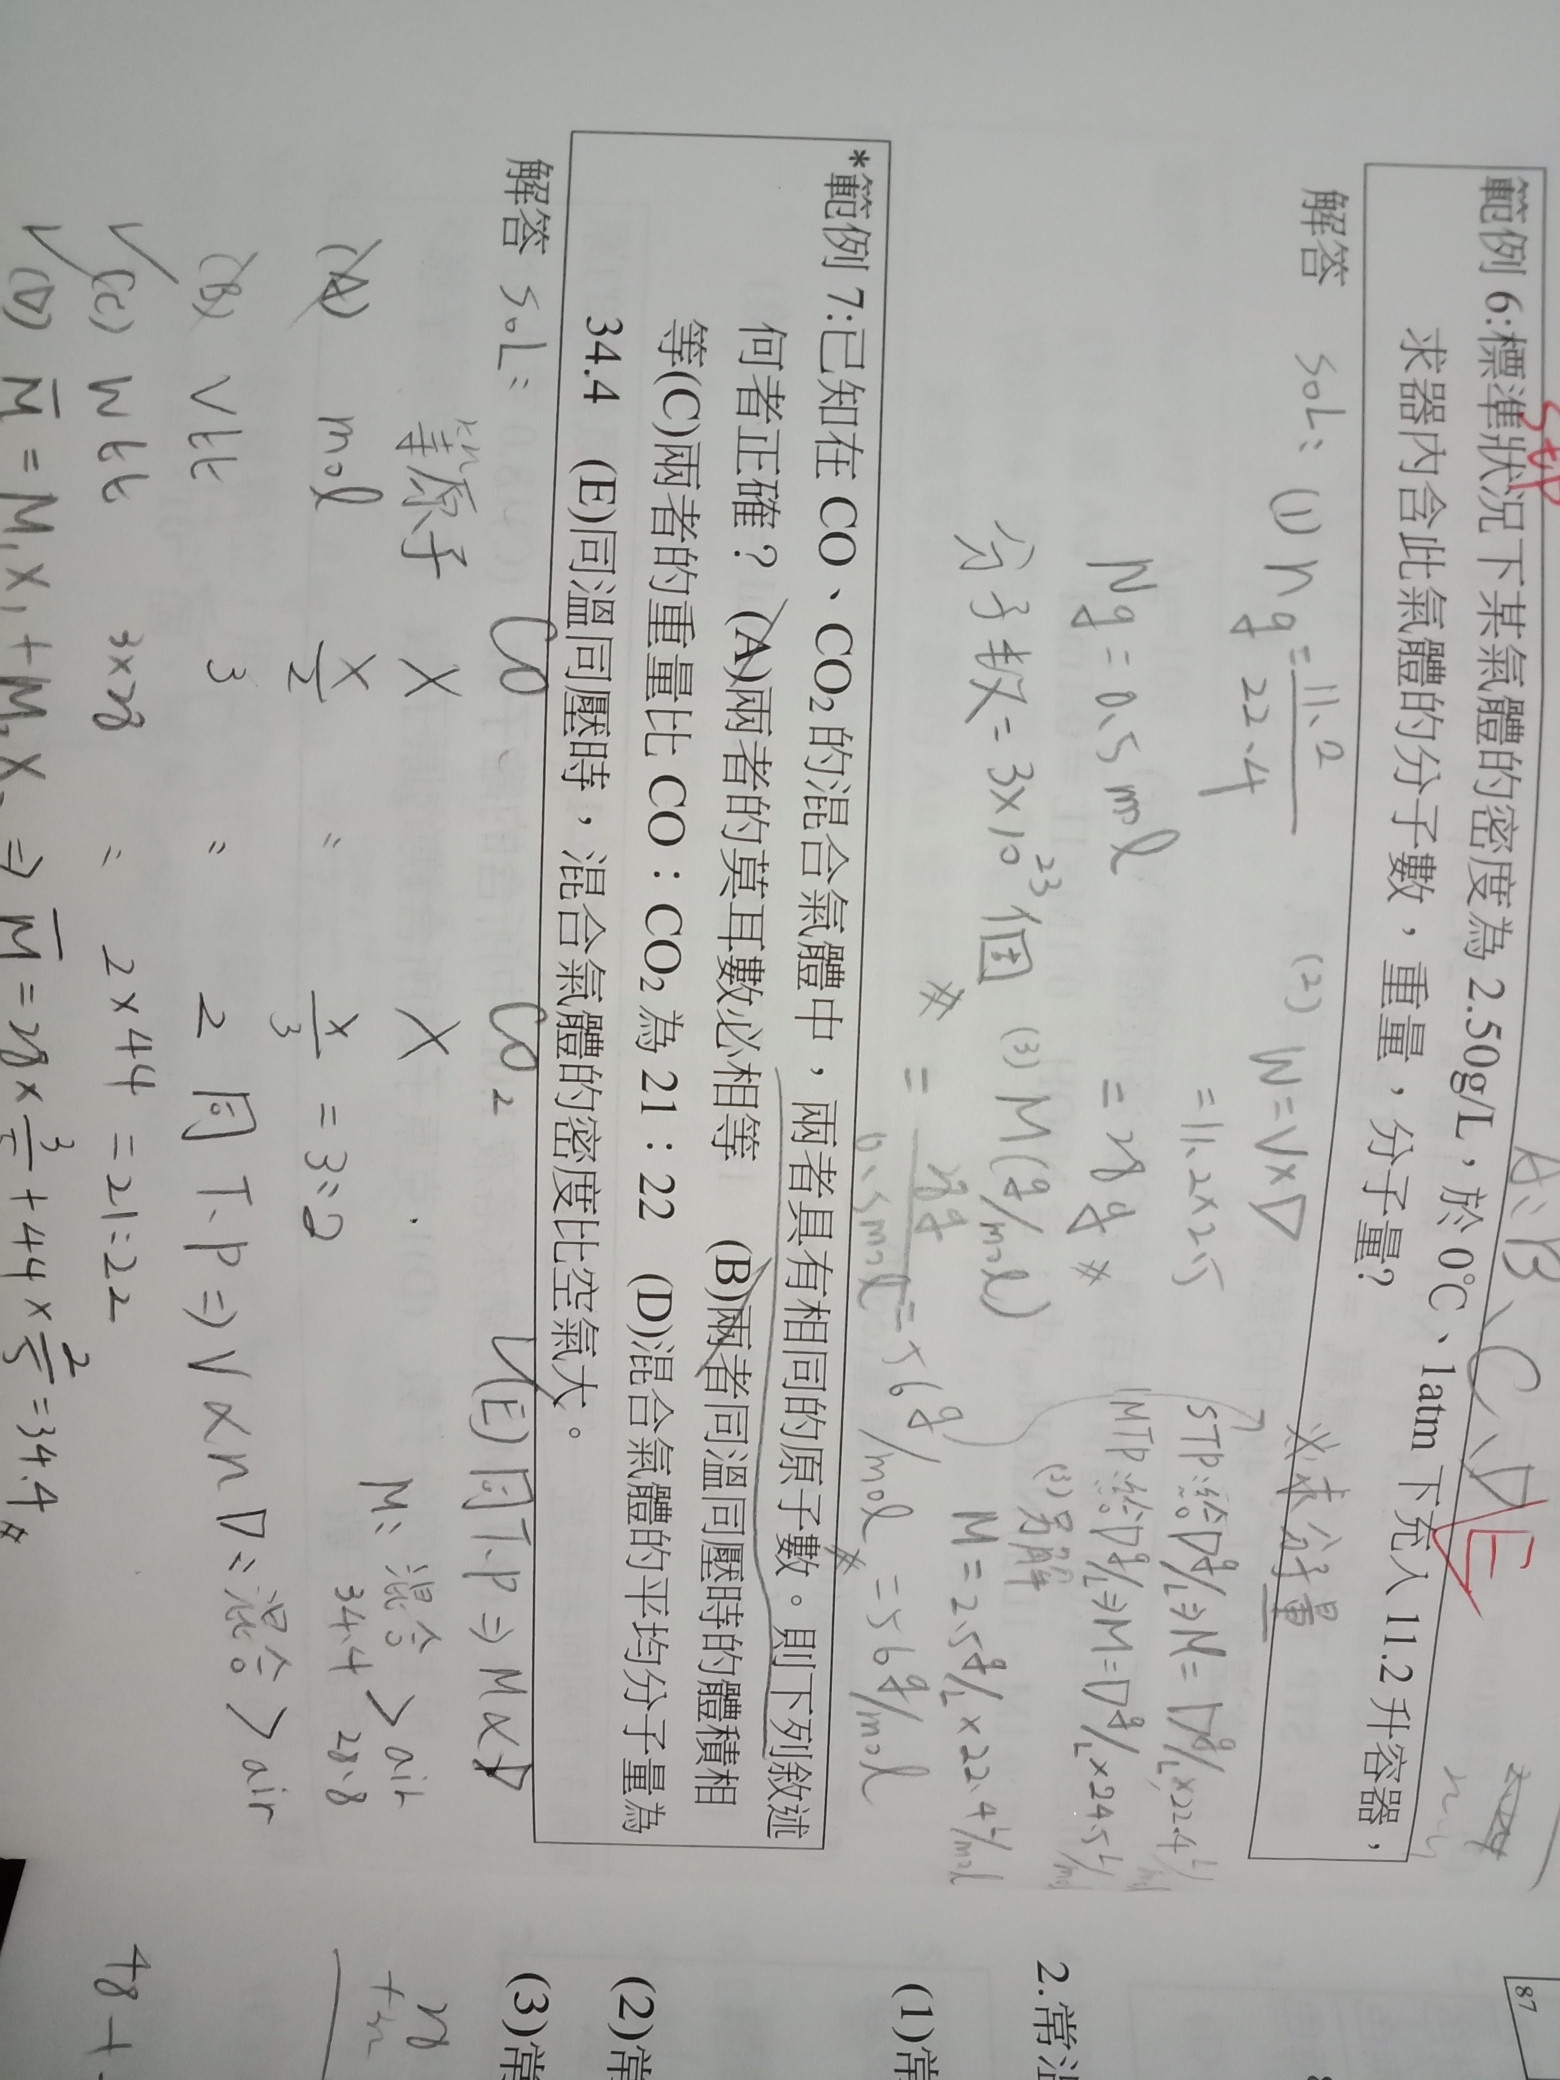 A、B、C、D、E
STP
範例 6:標準狀況下某氣體的密度為 2.50g/L，於 0℃、1atm 下充入 11.2 升容器，
求器內含此氣體的分子數，重量，分子量?
解答 SOL: (1) n g = 11.2 / 22.4
N g = 0.5 mol
分子数 = 3×10²³ 個 #
(2) W = V×D
= 11.2×2.5
= 28 g #
(3) M (g/mol)
= 28g / 0.5mol = 56 g/mol #
求分子量
STP 給 D g/L ⇒ M = D g/L ×22.4 L/mol
(3) 另解
M = 2.5 g/L × 22.4 L/mol
= 56 g/mol
*範例 7:已知在 CO、CO₂ 的混合氣體中，兩者具有相同的原子數。則下列敘述
何者正確？ (A)兩者的莫耳數必相等 (B)兩者同溫同壓時的體積相
等(C)兩者的重量比 CO：CO₂ 為 21：22 (D)混合氣體的平均分子量為
34.4 (E)同溫同壓時，混合氣體的密度比空氣大。
解答 SOL: CO CO₂
等原子 X X
(A) mol X/2 : X/3 = 3:2
(B) V比 3 : 2 同 T.P ⇒ V α n
✓(C) W比 3×28 : 2×44 = 21:22
✓(D) M̄ = M₁X₁ + M₂X₂ ⇒ M̄ = 28×3/5 + 44×2/5 = 34.4 #
✓(E) 同 T.P ⇒ M α D
M: 混合 > air
34.4 28.8
D: 混合 > air
87
2.常
(1)常
(2)常
(3)常
48 +